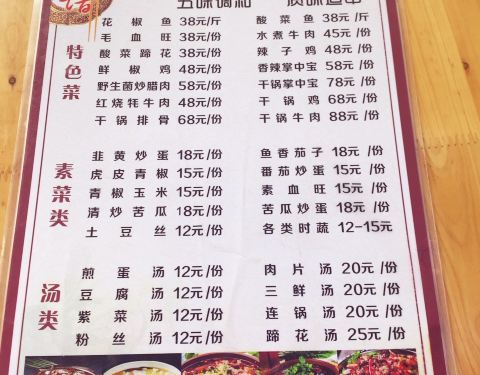 五味调和
特色菜
花椒鱼 38元/斤 酸菜鱼 38元/斤
毛血旺 38元/份 水煮牛肉 45元/份
酸菜蹄花 38元/份 辣子鸡 48元/份
鲜椒鸡 48元/份 香辣掌中宝 58元/份
野生菌炒腊肉 58元/份 干锅掌中宝 78元/份
红烧牦牛肉 48元/份 干锅鸡 68元/份
干锅排骨 68元/份 干锅牛肉 88元/份
素菜类
韭黄炒蛋 18元/份 鱼香茄子 18元/份
虎皮青椒 15元/份 番茄炒蛋 15元/份
青椒玉米 15元/份 素血旺 15元/份
清炒苦瓜 18元/份 苦瓜炒蛋 18元/份
土豆丝 12元/份 各类时蔬 12-15元
汤类
煎蛋汤 12元/份 肉片汤 20元/份
豆腐汤 12元/份 三鲜汤 20元/份
紫菜汤 12元/份 连锅汤 20元/份
粉丝汤 12元/份 蹄花汤 25元/份